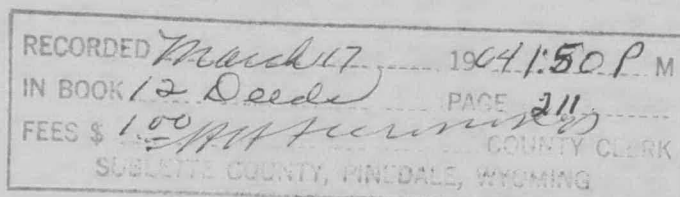 RECORDED March 17 1964 1:50 P M
IN BOOK 12 Deeds PAGE 211
FEES $ 1.00 COUNTY CLERK
SUBLETTE COUNTY, PINEDALE, WYOMING